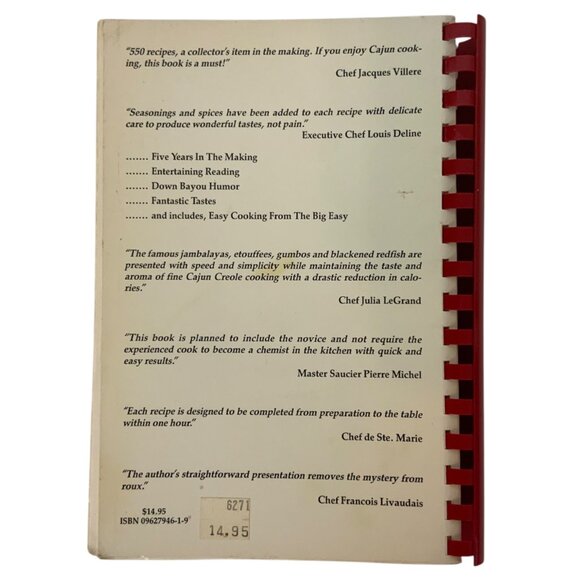 "550 recipes, a collector's item in the making. If you enjoy Cajun cook-
ing, this book is a must!"
Chef Jacques Villere
"Seasonings and spices have been added to each recipe with delicate
care to produce wonderful tastes, not pain."
Executive Chef Louis Deline
....... Five Years In The Making
....... Entertaining Reading
....... Down Bayou Humor
....... Fantastic Tastes
....... and includes, Easy Cooking From The Big Easy
"The famous jambalayas, etouffees, gumbos and blackened redfish are
presented with speed and simplicity while maintaining the taste and
aroma of fine Cajun Creole cooking with a drastic reduction in calo-
ries."
Chef Julia LeGrand
"This book is planned to include the novice and not require the
experienced cook to become a chemist in the kitchen with quick and
easy results."
Master Saucier Pierre Michel
"Each recipe is designed to be completed from preparation to the table
within one hour."
Chef de Ste. Marie
"The author's straightforward presentation removes the mystery from
roux."
Chef Francois Livaudais
$14.95
ISBN 09627946-1-9
6271
14.95